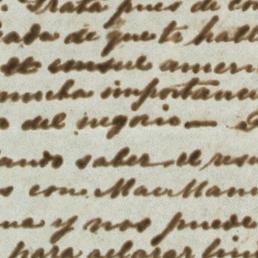 Trata pues de co
de que te hall
el consul amer
mucha importanc
o del negocio —
ando saber el res
s con Mac Man
y nos puede
para aclarar